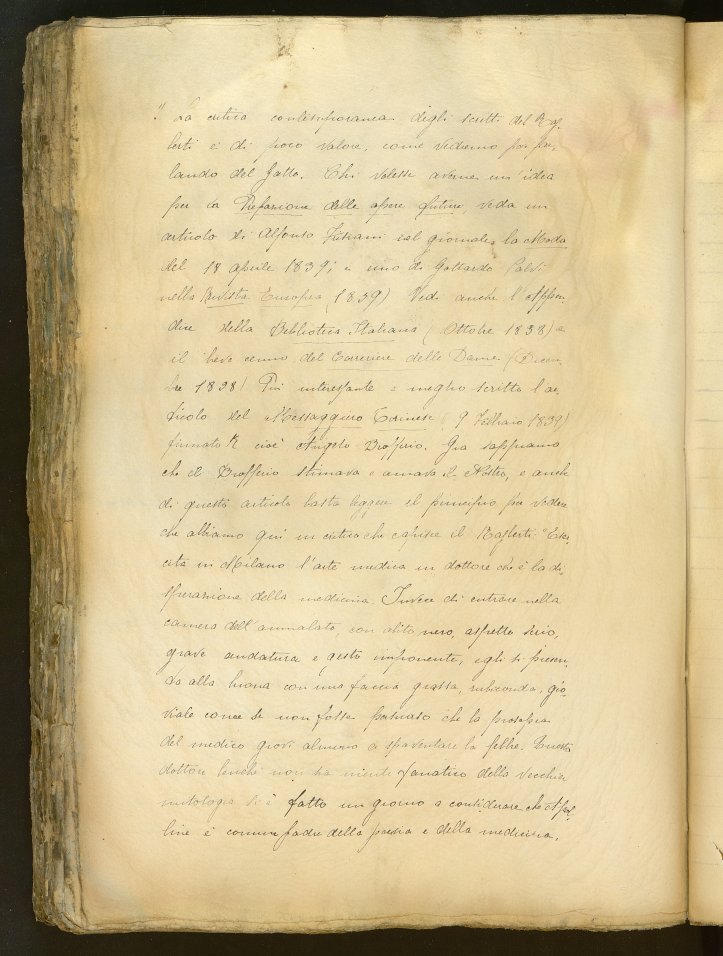 " La critica contemporanea degli scritti del Raj-
berti è di poco valore, come vedremo poi par-
lando del Gatto. Chi volesse averne un'idea
per la Prefazione delle opere future, veda un
articolo di Alfonso sul giornale la Moda
del 18 aprile 1839; e uno di Gottardo Calvi
nella Rivista Europea (1839) Vedi anche l'Appen-
dice della Biblioteca Italiana (Ottobre 1838) e
il breve cenno del Corriere delle Dame (Dicem-
bre 1838) Più interessante e meglio scritto l'ar-
ticolo del Messaggiero Torinese (9 Febbraio 1839)
firmato cioè Angelo Brofferio. Già sappiamo
che il Brofferio stimava e amava il Nostro, e anche
di questo articolo basta leggere il principio per vedere
che abbiamo qui un critico che capisce il Rajberti "Eser-
cita in Milano l'arte medica un dottore che è la di-
sperazione della medicina. Invece di entrare nella
camera dell'ammalato, con abito nero, aspetto serio,
grave andatura e gesto imponente, egli si presen-
ta alla buona con una faccia grassa, rubiconda, gio-
viale come se non fosse persuaso che la prosopopea
del medico giovi almeno a spaventare la febbre. Questo
dottore benchè non sia niente fanatico della vecchia
mitologia si è fatto un giorno a considerare che Apol-
line è comun padre della poesia e della medicina.